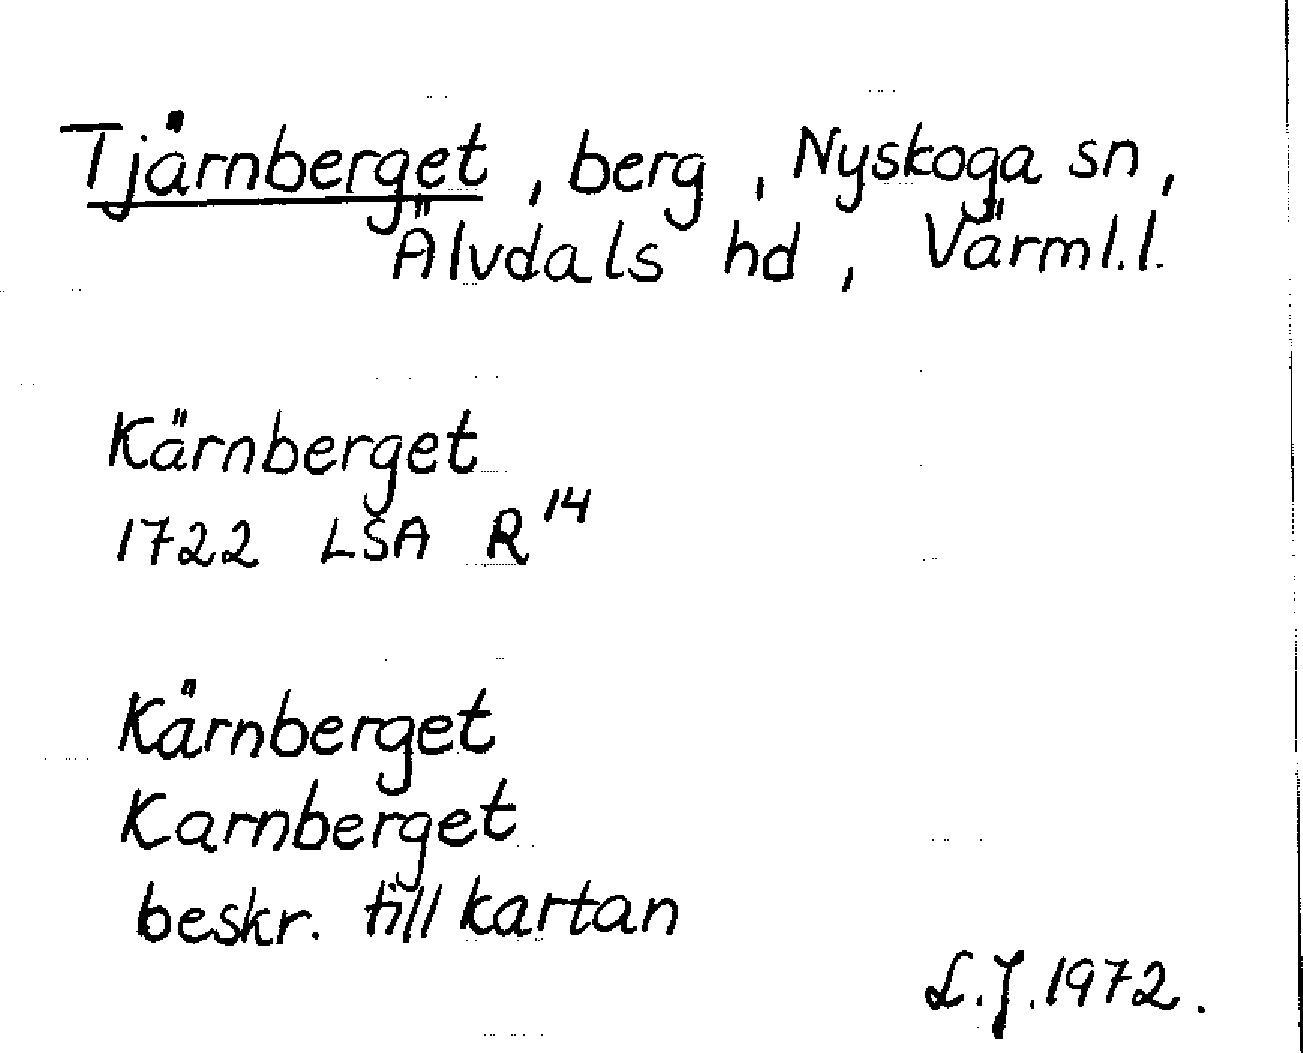 Tjärnberget, berg, Nyskoga sn,
Älvdals hd, Värml.l.
Kärnberget
1722 LSA R 14
Kärnberget
Karnberget
beskr. till kartan
L.J. 1972.